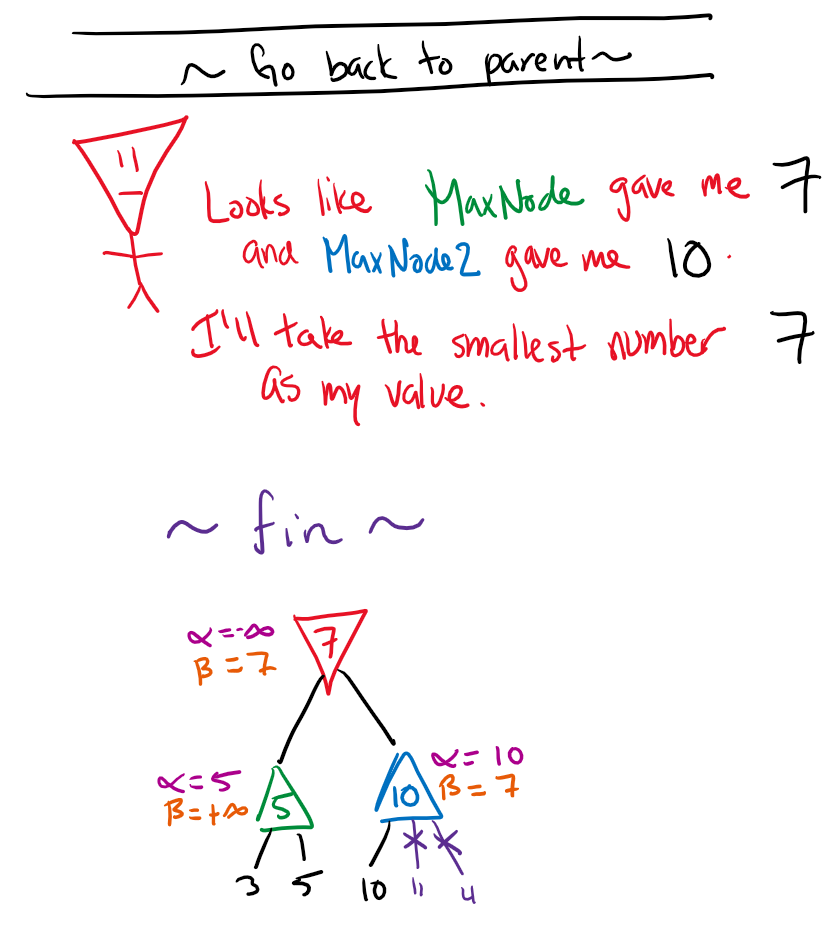 ~ Go back to parent ~
Looks like MaxNode gave me 7
and MaxNode2 gave me 10.
I'll take the smallest number 7
as my value.
~ fin ~
α=-∞
β=7
7
α=5
β=+∞
5
10
α=10
β=7
3 5 10 11 4